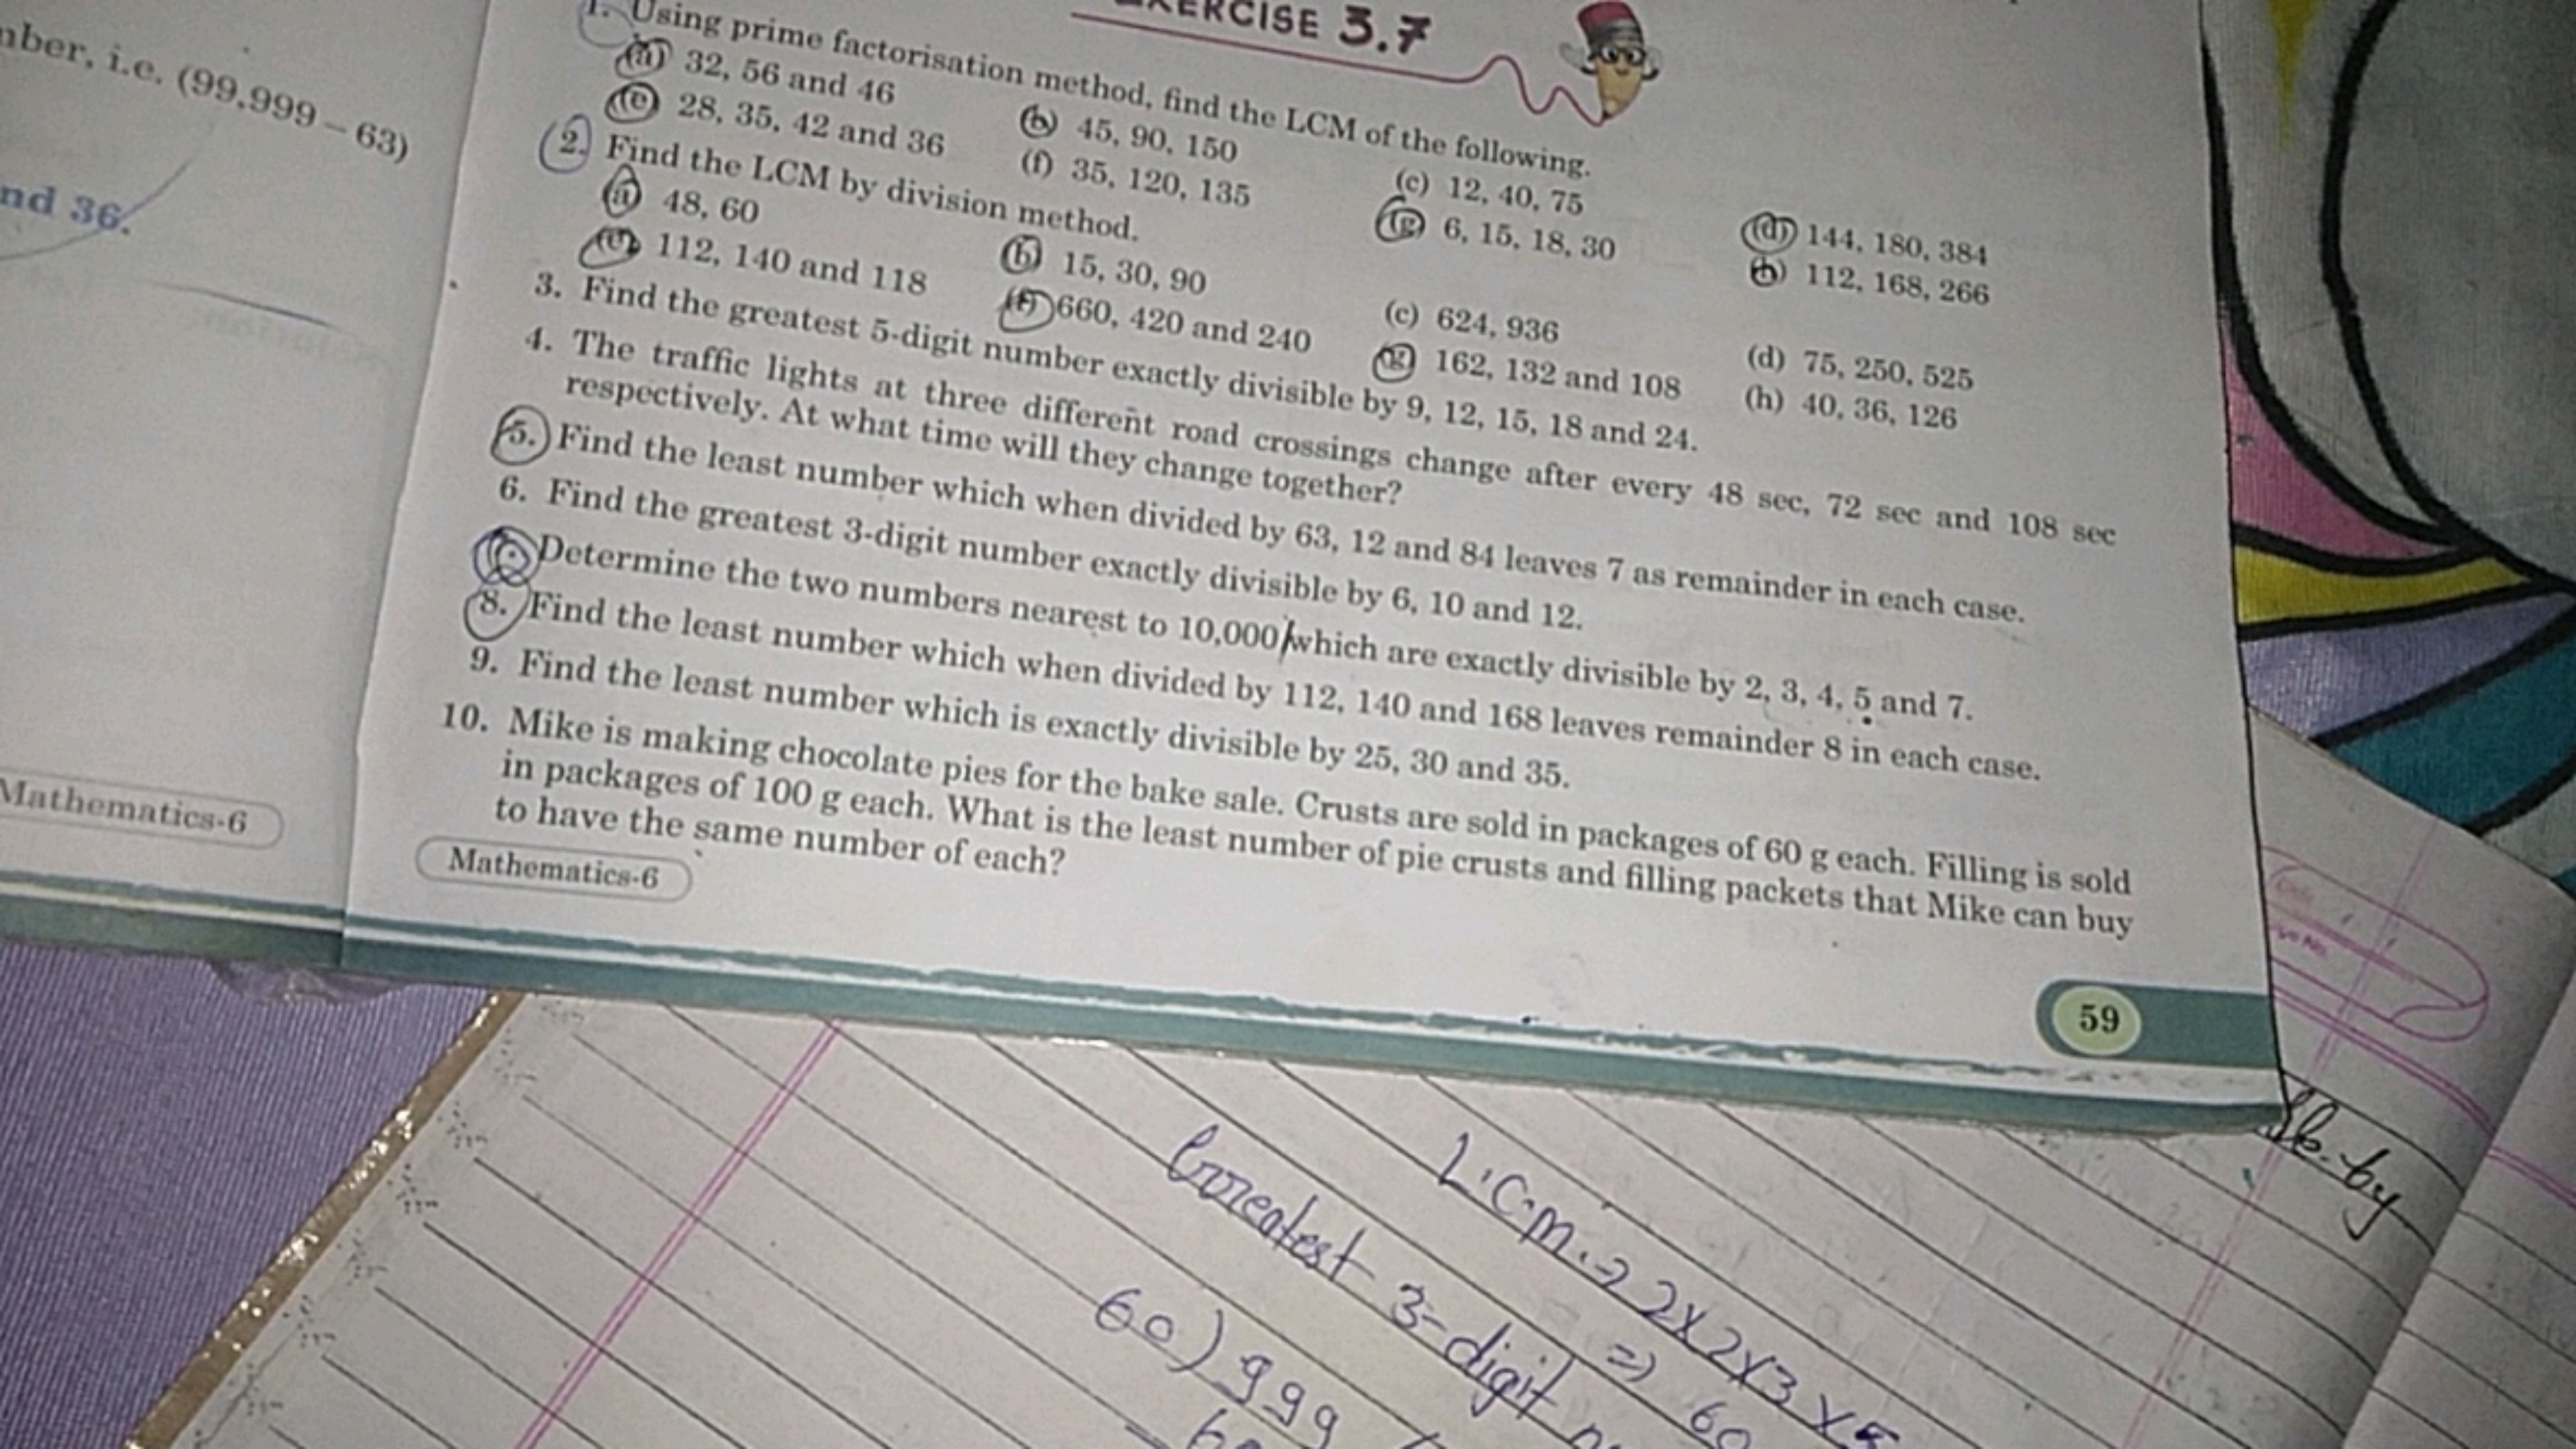 EXERCISE 3.7
1. Using prime factorisation method, find the LCM of the following.
(a) 32, 56 and 46
(b) 45, 90, 150
(c) 12, 40, 75
(d) 144, 180, 384
(e) 28, 35, 42 and 36
(f) 35, 120, 135
(g) 6, 15, 18, 30
(h) 112, 168, 266
2. Find the LCM by division method.
(a) 48, 60
(b) 15, 30, 90
(c) 624, 936
(d) 75, 250, 525
(e) 112, 140 and 118
(f) 660, 420 and 240
(g) 162, 132 and 108
(h) 40, 36, 126
3. Find the greatest 5-digit number exactly divisible by 9, 12, 15, 18 and 24.
4. The traffic lights at three different road crossings change after every 48 sec, 72 sec and 108 sec
respectively. At what time will they change together?
5. Find the least number which when divided by 63, 12 and 84 leaves 7 as remainder in each case.
6. Find the greatest 3-digit number exactly divisible by 6, 10 and 12.
Determine the two numbers nearest to 10,000 which are exactly divisible by 2, 3, 4, 5 and 7.
8. Find the least number which when divided by 112, 140 and 168 leaves remainder 8 in each case.
9. Find the least number which is exactly divisible by 25, 30 and 35.
10. Mike is making chocolate pies for the bake sale. Crusts are sold in packages of 60 g each. Filling is sold
in packages of 100 g each. What is the least number of pie crusts and filling packets that Mike can buy
to have the same number of each?
Mathematics-6
59
i.e. (99,999 – 63)
36.
Mathematics-6
by
L.C.M. → 2×2×3×5
⇒ 60
Greatest 3-digit
60) 999